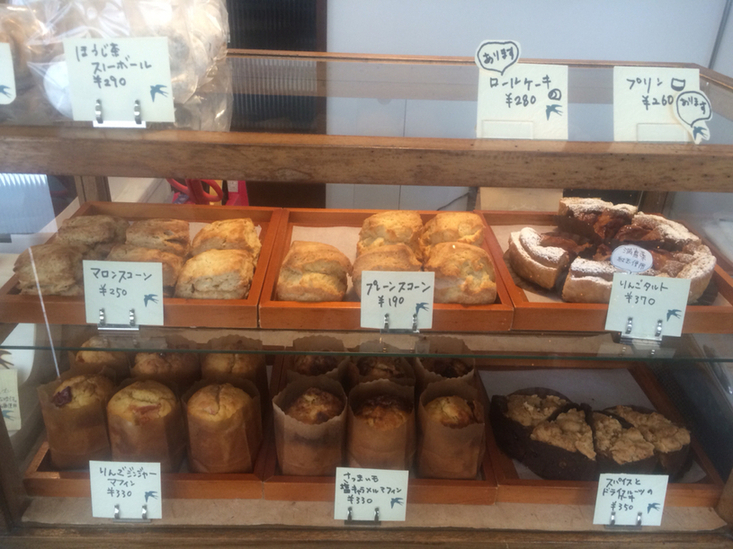 ほうじ茶
スノーボール
¥290
あります
ロールケーキ
¥280
プリン
¥260
あります
マロンスコーン
¥250
プレーンスコーン
¥190
りんごタルト
¥370
りんごジンジャー
マフィン
¥330
さつまいも
塩キャラメルマフィン
¥330
スパイスと
ドライフルーツの
ケーキ
¥350